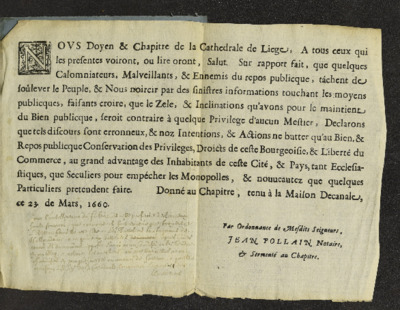 NOVS Doyen & Chapitre de la Cathedrale de Liege, A tous ceux qui
les presentes voiront, ou lire oront, Salut. Sur rapport fait, que quelques
Calomniateurs, Malveillants, & Ennemis du repos publicque, tâchent de
soûlever le Peuple, & Nous noircir par des sinistres informations touchant les moyens
publicques, faisants croire, que le Zele, & Inclinations qu'avons pour le maintient
du Bien publicque, seroit contraire à quelque Privilege d'aucun Mestier, Declarons
que tels discours sont erronneux, & noz Intentions, & Actions ne butter qu'au Bien, &
Repos publicque Conservation des Privileges, Droicts de ceste Bourgeoisie, & Liberté du
Commerce, au grand advantage des Inhabitants de ceste Cité, & Pays, tant Ecclesia-
stiques, que Seculiers pour empécher les Monopolles, & nouveautez que quelques
Particuliers pretendent faire. Donné au Chapitre, tenu à la Maison Decanale,
ce 23. de Mars, 1660.
Par Ordonnance de Mesdits Seigneurs,
JEAN POLLAIN, Notaire,
& Sermenté au Chapitre.